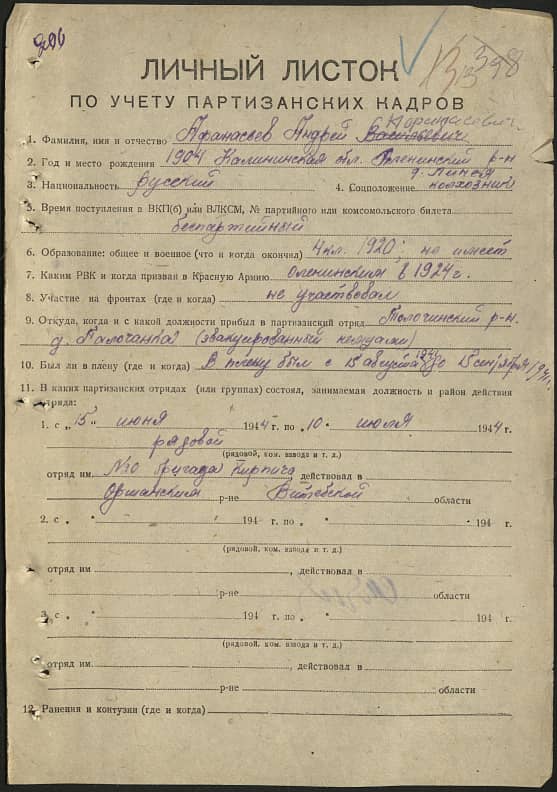 ЛИЧНЫЙ ЛИСТОК
ПО УЧЕТУ ПАРТИЗАНСКИХ КАДРОВ
1. Фамилия, имя и отчество Афанасьев Андрей Васильевич
2. Год и место рождения 1904 Калининская обл. Оленинский р-н
3. Национальность русский 4. Соцположение колхозник
5. Время поступления в ВКП(б) или ВЛКСМ, № партийного или комсомольского билета
беспартийный
6. Образование: общее и военное (что и когда окончил) 4 кл. 1920; не имеет
7. Каким РВК и когда призван в Красную Армию Оленинским в 1924 г.
8. Участие на фронтах (где и когда) не участвовал
9. Откуда, когда и с какой должности прибыл в партизанский отряд Толочинский р-н.
д. Галочанка (эвакуированный немцами)
10. Был ли в плену (где и когда) В плену был с 15 августа до 15 сентября 1941.
11. В каких партизанских отрядах (или группах) состоял, занимаемая должность и район действия
отряда:
1. с „15„ июня 1944 г. по „10„ июля 1944 г.
рядовой
(рядовой, ком. взвода и т. д.)
отряд им. №10 бригада Кирпича, действовал в
Оршанском р-не Витебской области
2. с „ " 194 г. по „ " 194 г.
(рядовой, ком. взвода и т. д.)
отряд им , действовал в
р-не области
3. с „ " 194 г. по „ " 194 г.
(рядовой, ком. взвода и т. д.)
отряд им , действовал в
р-не области
12. Ранения и контузии (где и когда)